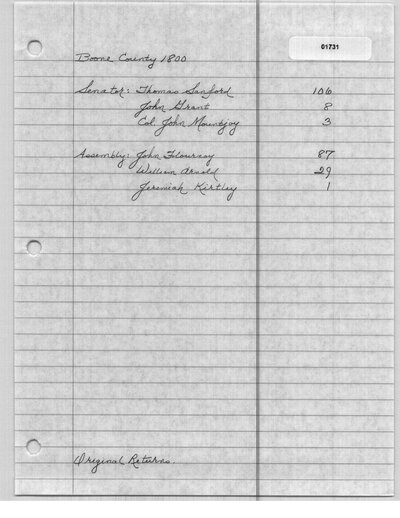 01731
Boone County 1800
Senator: Thomas Sanford 106
John Grant 8
Col. John Mountjoy 3
Assembly: John Flournoy 87
William Arnold 29
Jeremiah Kirtley 1
Original Returns.